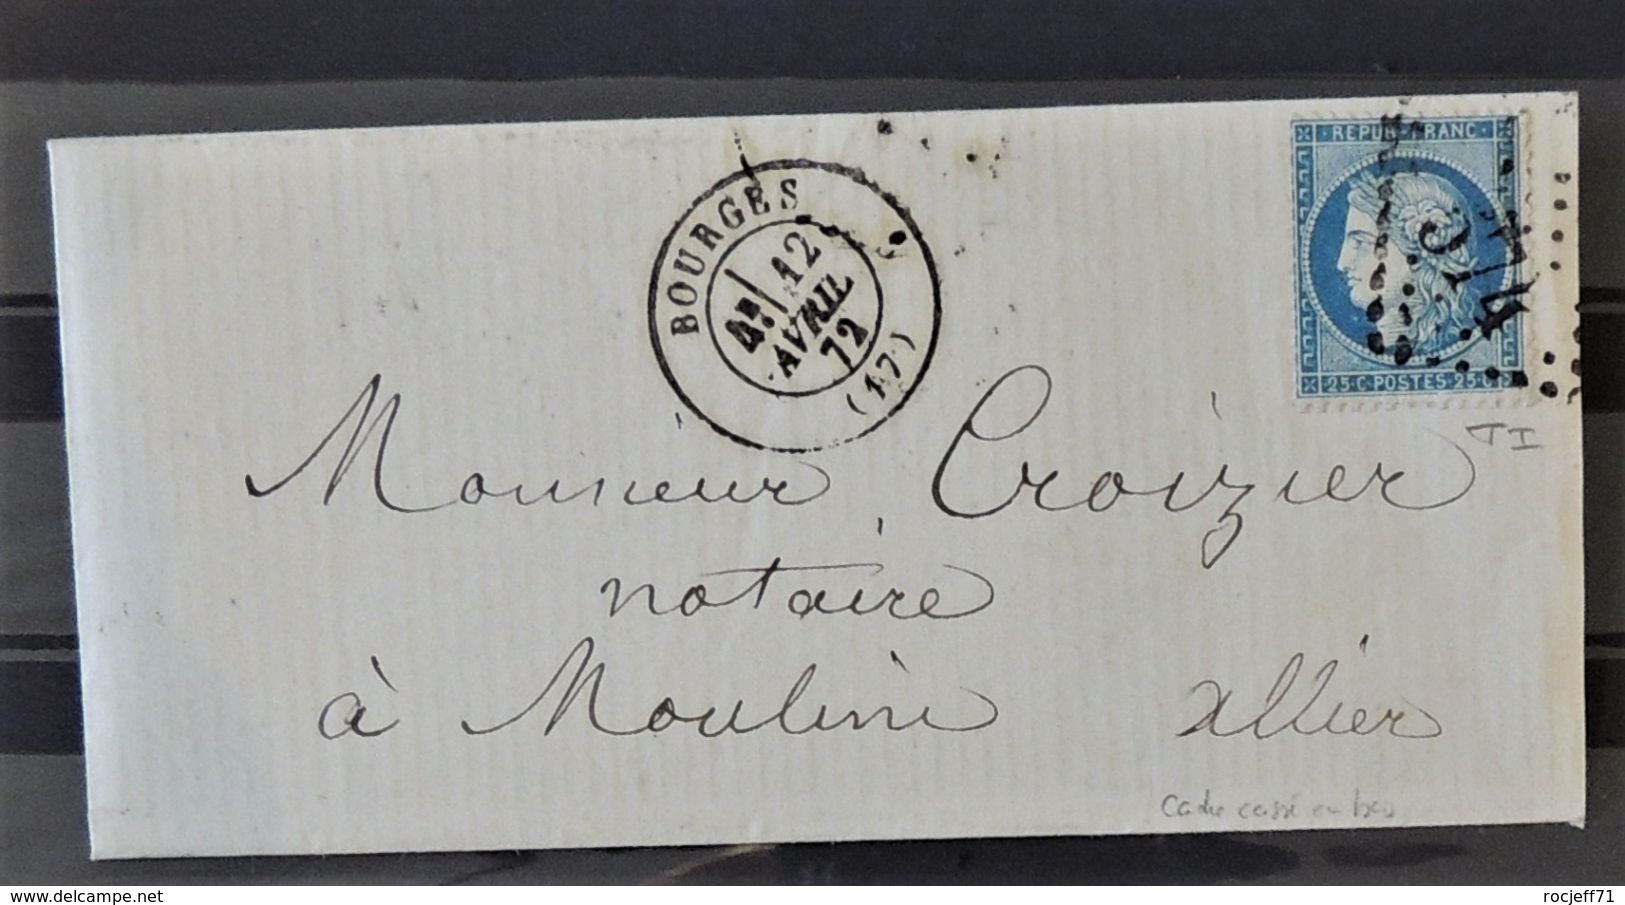 REPUB. FRANC.
25·C·POSTES·25·C
BOURGES
12
AVRIL
72
(17)
TI
Monsieur Croizier
notaire
à Moulins allier
Cadre cassé en bas
rocjeff71